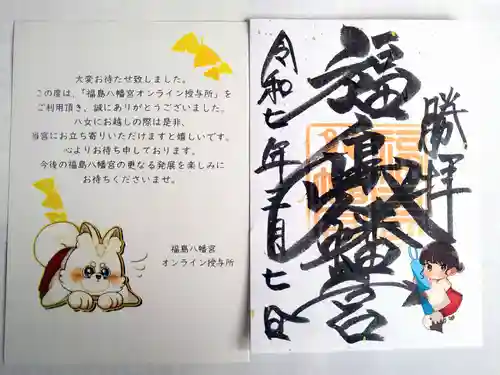 大変お待たせ致しました。
この度は、「福島八幡宮オンライン授与所」を
ご利用頂き、誠にありがとうございました。
八女にお越しの際は是非、
当宮にお立ち寄りいただけますと嬉しいです。
心よりお待ち申しております。
今後の福島八幡宮の更なる発展を楽しみに
お待ちくださいませ。
福島八幡宮
オンライン授与所
勝拝
福島八幡宮